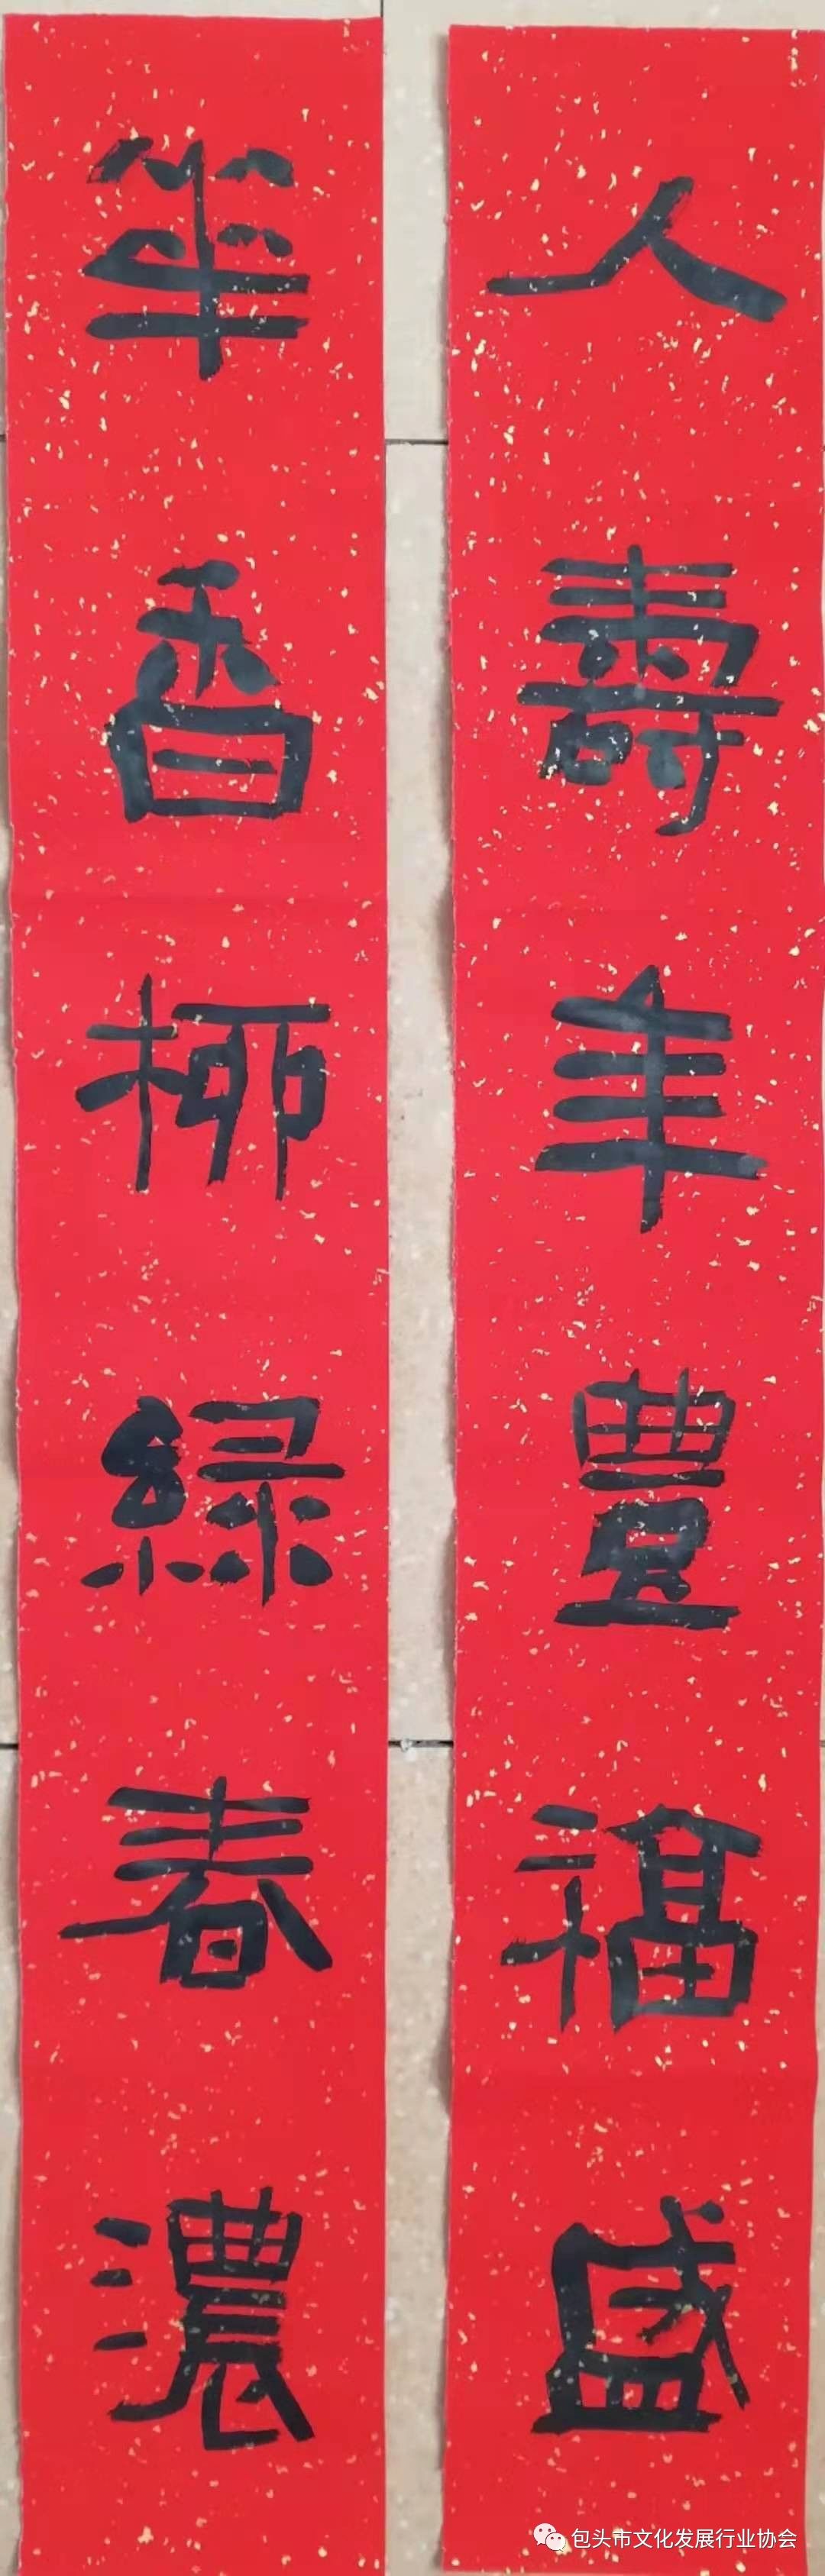 人壽年豊福盛
華香柳綠春濃
包头市文化发展行业协会